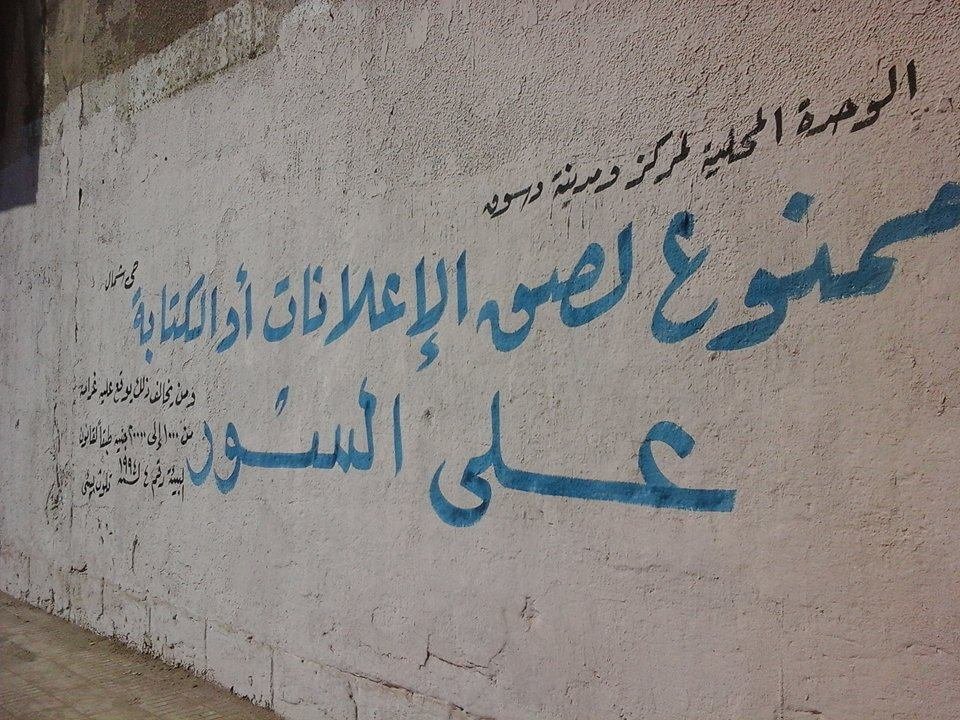 الوحدة المحلية لمركز ومدينة دسوق
ممنوع لصق الإعلانات أو الكتابة
على السور
حى شمال
ومن يخالف ذلك يوقع عليه غرامة
من ١٠٠٠ إلى ٢٠٠٠٠ جنيه طبقاً لقانون
البيئة رقم ٤ لسنة ١٩٩٤